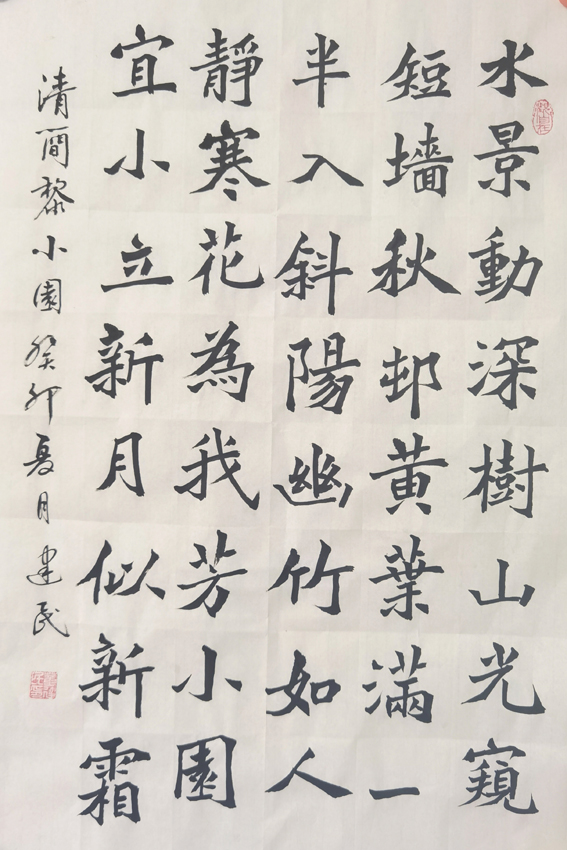 水景動深樹山光窺
短墻秋邨黃葉滿一
半入斜陽幽竹如人
靜寒花為我芳小園
宜小立新月似新霜
清簡黎小園癸卯夏月建民